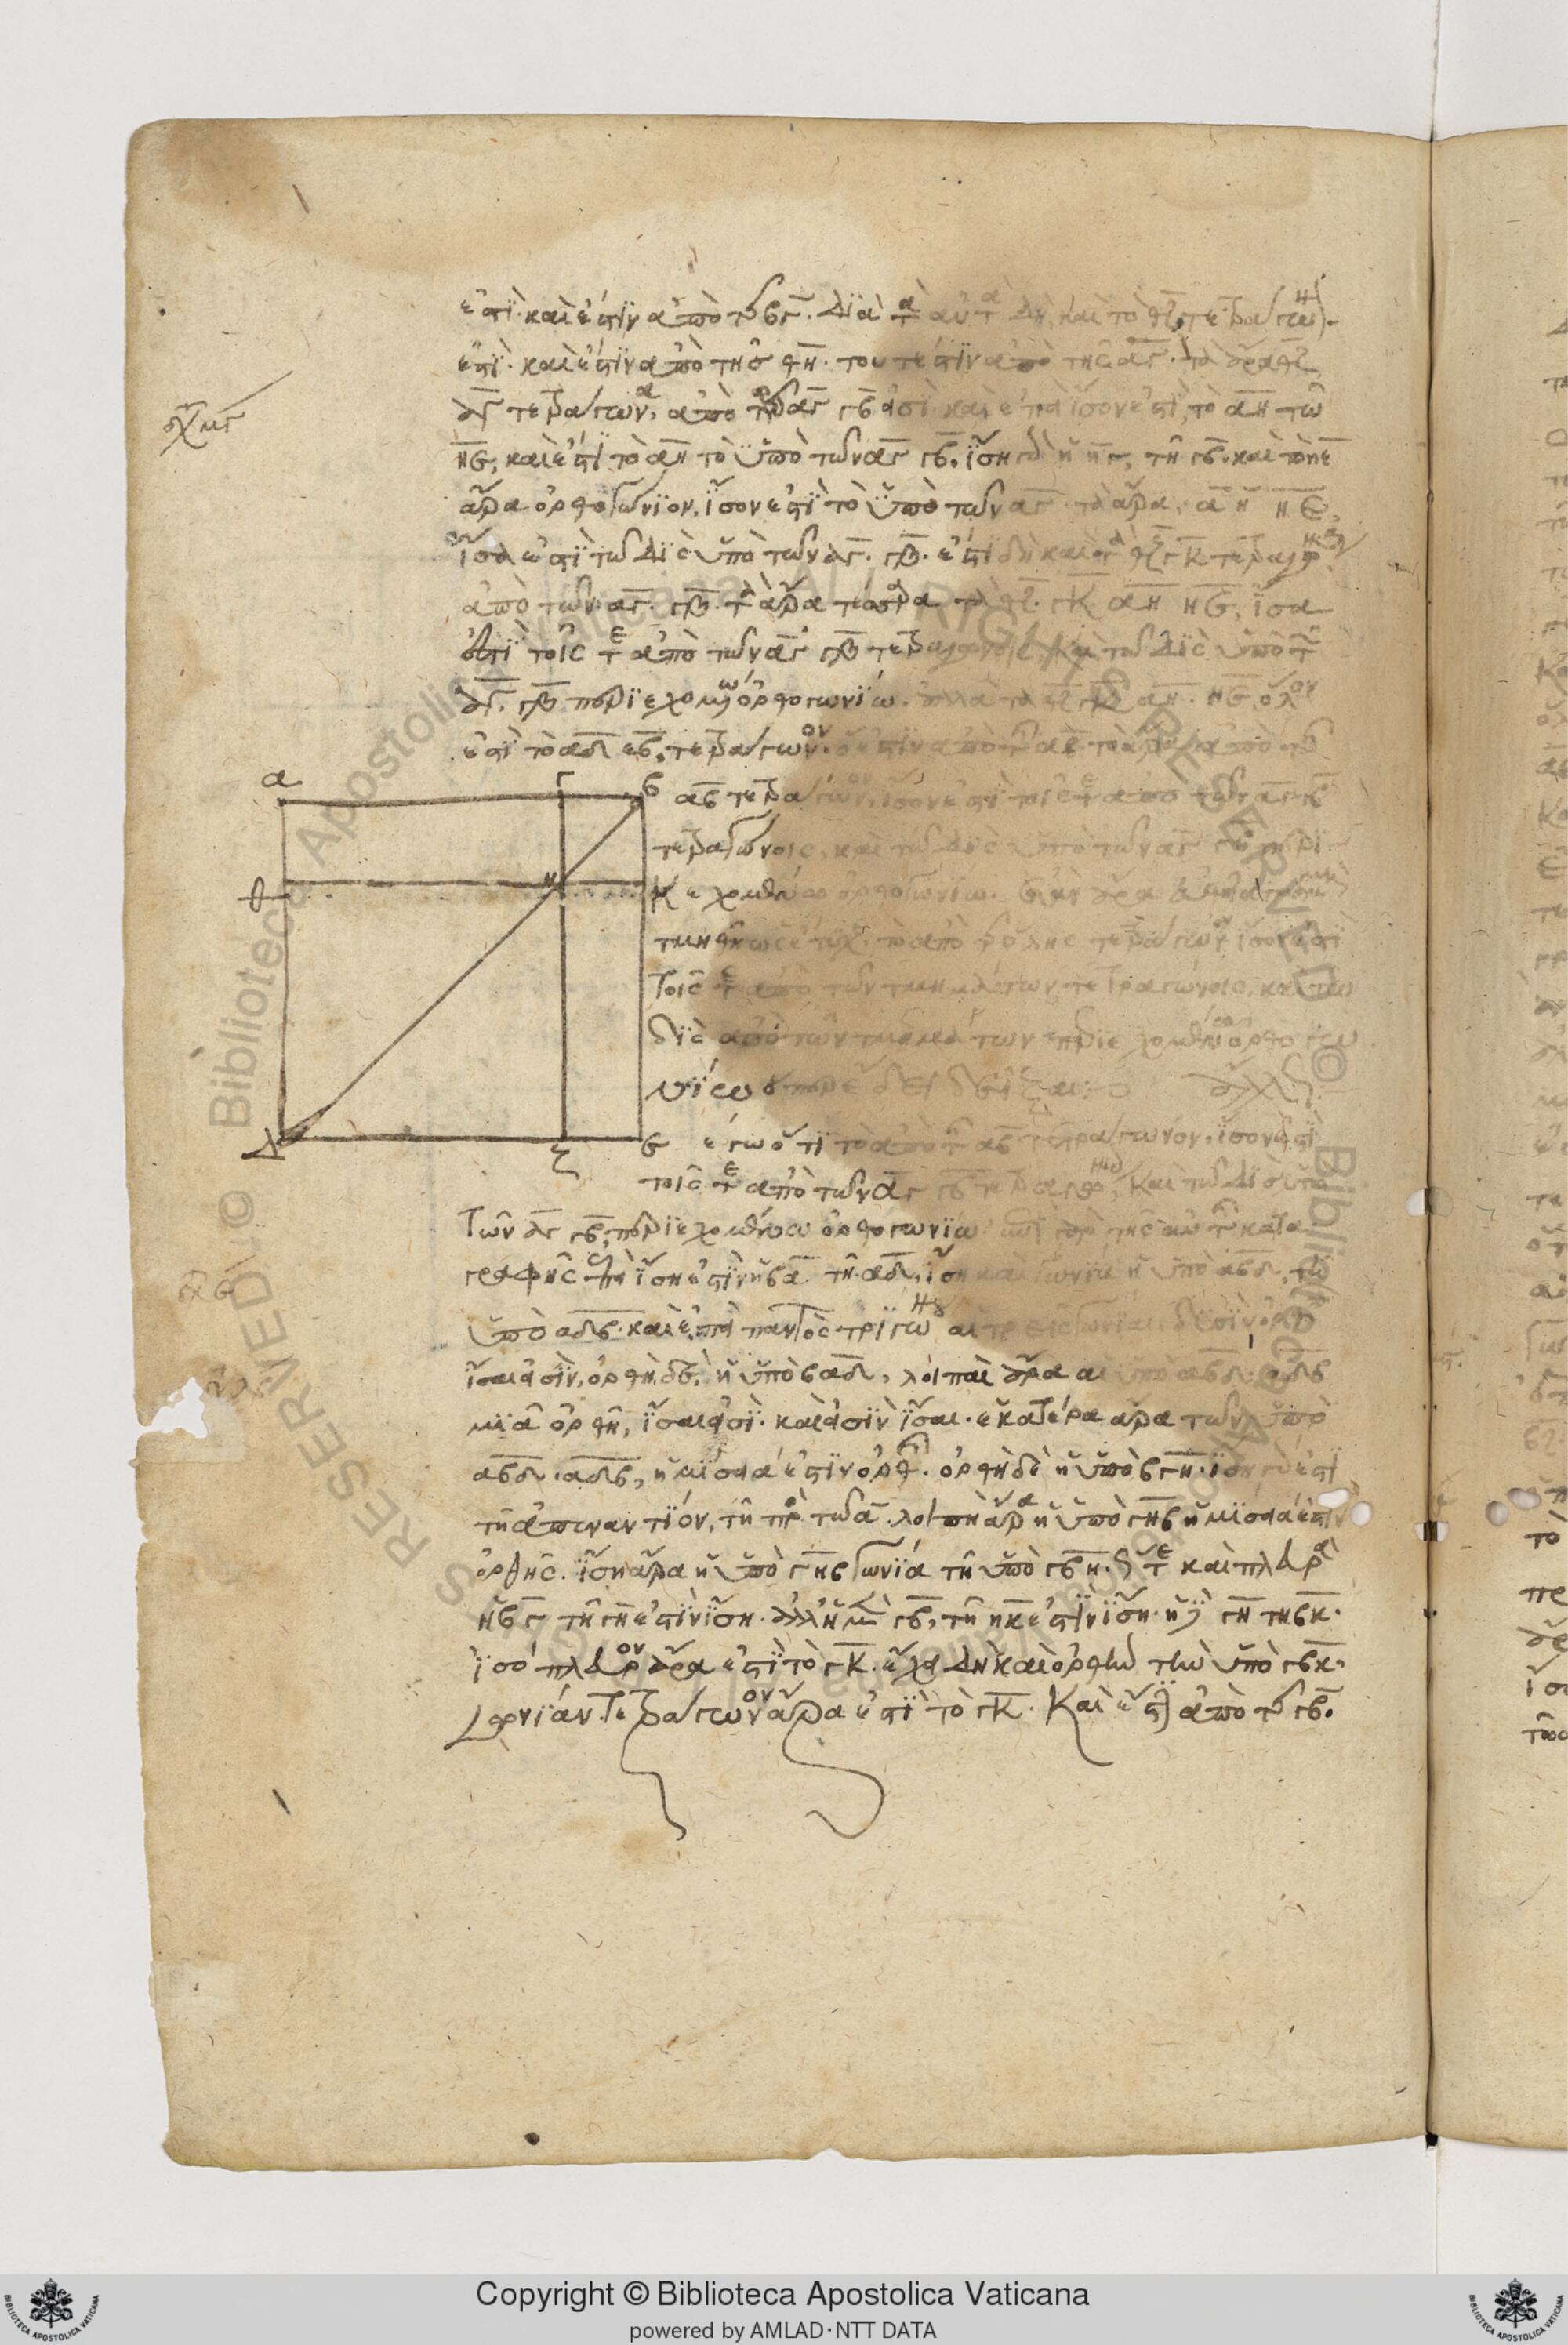 ἐστὶ· καὶ ἔστιν ἀπὸ τῆς βγ. διὰ τὰ αὐτὰ δὴ καὶ τὸ θζ τετράγων
ἐστὶ· καὶ ἔστιν ἀπὸ τῆς θη· τουτέστιν ἀπὸ τῆς αγ· τὰ ἄρα θζ
τετράγωνα, ἀπὸ τῶν αγ γβ εἰσὶ· καὶ ἐπεὶ ἴσον ἐστὶ, τὸ αη τῶ
ηε, καὶ ἐστὶ τὸ αη τὸ ὑπὸ τῶν αγ γβ. ἴση γὰρ ἡ ηγ, τῆ γβ. καὶ τὸ ηε
ἄρα ὀρθογώνιον, ἴσον ἐστὶ τὸ ὑπὸ τῶν αγ τὰ ἄρα, αη ηε,
ἴσα ἐστὶ τῶ δὶς ὑπὸ τῶν αγ. γβ. ἔστι δὲ καὶ τὰ θζ γκ τετράγωνα
ἀπὸ τῶν αγ. γβ. τὰ ἄρα τέσσαρα τὰ θζ. γκ. αη ηε, ἴσα
ἐστὶ τοῖς τε ἀπὸ τῶν αγ γβ τετραγώνοις καὶ τῶ δὶς ὑπὸ τῶν
αγ. γβ περιεχομένω ὀρθογωνίω. ἀλλὰ τὰ θζ γκ αη. ηε, ὅλον
ἐστὶ τὸ αδεβ, τετράγωνον. ὅ ἐστιν ἀπὸ τῆς αβ. τὸ ἄρα ἀπὸ τῆς
α
γ
β
αβ τετράγωνον, ἴσον ἐστὶ τοῖς τε ἀπὸ τῶν αγ γβ
τετραγώνοις, καὶ τῶ δὶς ὑπὸ τῶν αγ γβ περι
θ
η
κ
εχομένω ὀρθογωνίω. ἐὰν ἄρα εὐθεῖα γραμμὴ
τμηθῆ ὡς ἔτυχε. τὸ ἀπὸ τῆς ὅλης τετράγωνον ἴσον ἐστὶ
τοῖς τε ἀπὸ τῶν τμημάτων τετραγώνοις, καὶ τῶ
δὶς ἀπὸ τῶν τμημάτων περιεχομένω ὀρθογω
νίω ὅπερ ἔδει δεῖξαι:
δ
ζ
ε
λέγω ὅτι τὸ ἀπὸ τῆς αβ τετράγωνον, ἴσον ἐστὶ
τοῖς τε ἀπὸ τῶν αγ γβ τετραγώνοις, καὶ τῶ δὶς ὑπὸ
τῶν αγ γβ, περιεχομένω ὀρθογωνίω ἐπὶ γὰρ τῆς αὐτῆς κατα
γραφῆς ἐπεὶ ἴση ἐστὶν ἡ βα τῆ αδ, ἴση καὶ γωνία ἡ ὑπὸ αβδ, τῆ
ὑπὸ αδβ. καὶ ἐπεὶ παντὸς τριγώνου αἱ τρεῖς γωνίαι δυσὶν ὀρθαῖς
ἴσαι εἰσὶν, ὀρθὴ δὲ, ἡ ὑπὸ βαδ, λοιπαὶ ἄρα αἱ ὑπὸ αβδ. αδβ
μιᾶ ὀρθῆ, ἴσαι εἰσὶ. καὶ εἰσὶν ἴσαι. ἑκατέρα ἄρα τῶν ὑπὸ
αβδ. αδβ, ἡμίσειά ἐστιν ὀρθῆς. ὀρθὴ δὲ ἡ ὑπὸ βγη. ἴση γάρ ἐστι
τῆ ἀπεναντίον, τῆ πρὸς τῶ α. λοιπὴ ἄρα ἡ ὑπὸ γηβ ἡμίσειά ἐστιν
ὀρθῆς. ἴση ἄρα ἡ ὑπὸ γηβ γωνία τῆ ὑπὸ γβη. ὥστε καὶ πλευρὰ
ἡ βγ τῆ γη ἐστὶν ἴση. ἀλλ' ἡ μὲν γβ, τῆ ηκ ἐστὶν ἴση. ἡ δὲ γη τῆ βκ.
ἰσόπλευρον ἄρα ἐστὶ τὸ γκ. ἔχει δὴ καὶ ὀρθὴν τὴν ὑπὸ γβκ,
γωνίαν. τετράγωνον ἄρα ἐστὶ τὸ γκ. καὶ ἔστιν ἀπὸ τῆς γβ.
Copyright © Biblioteca Apostolica Vaticana
powered by AMLAD·NTT DATA